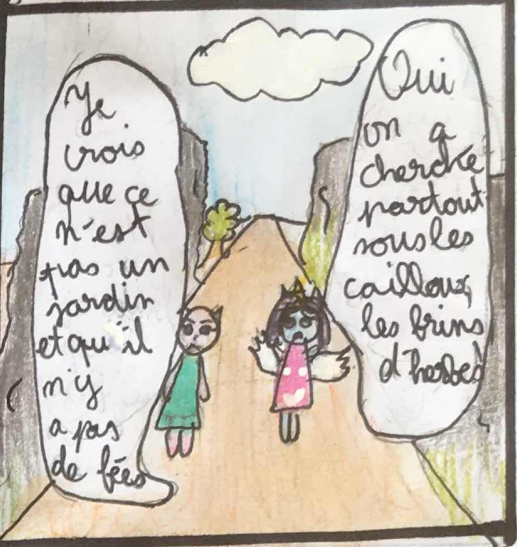 Je
crois
que ce
n'est
pas un
jardin
et qu'il
n'y
a pas
de fées
Oui
on a
cherché
partout
sous les
cailloux,
les brins
d'herbes